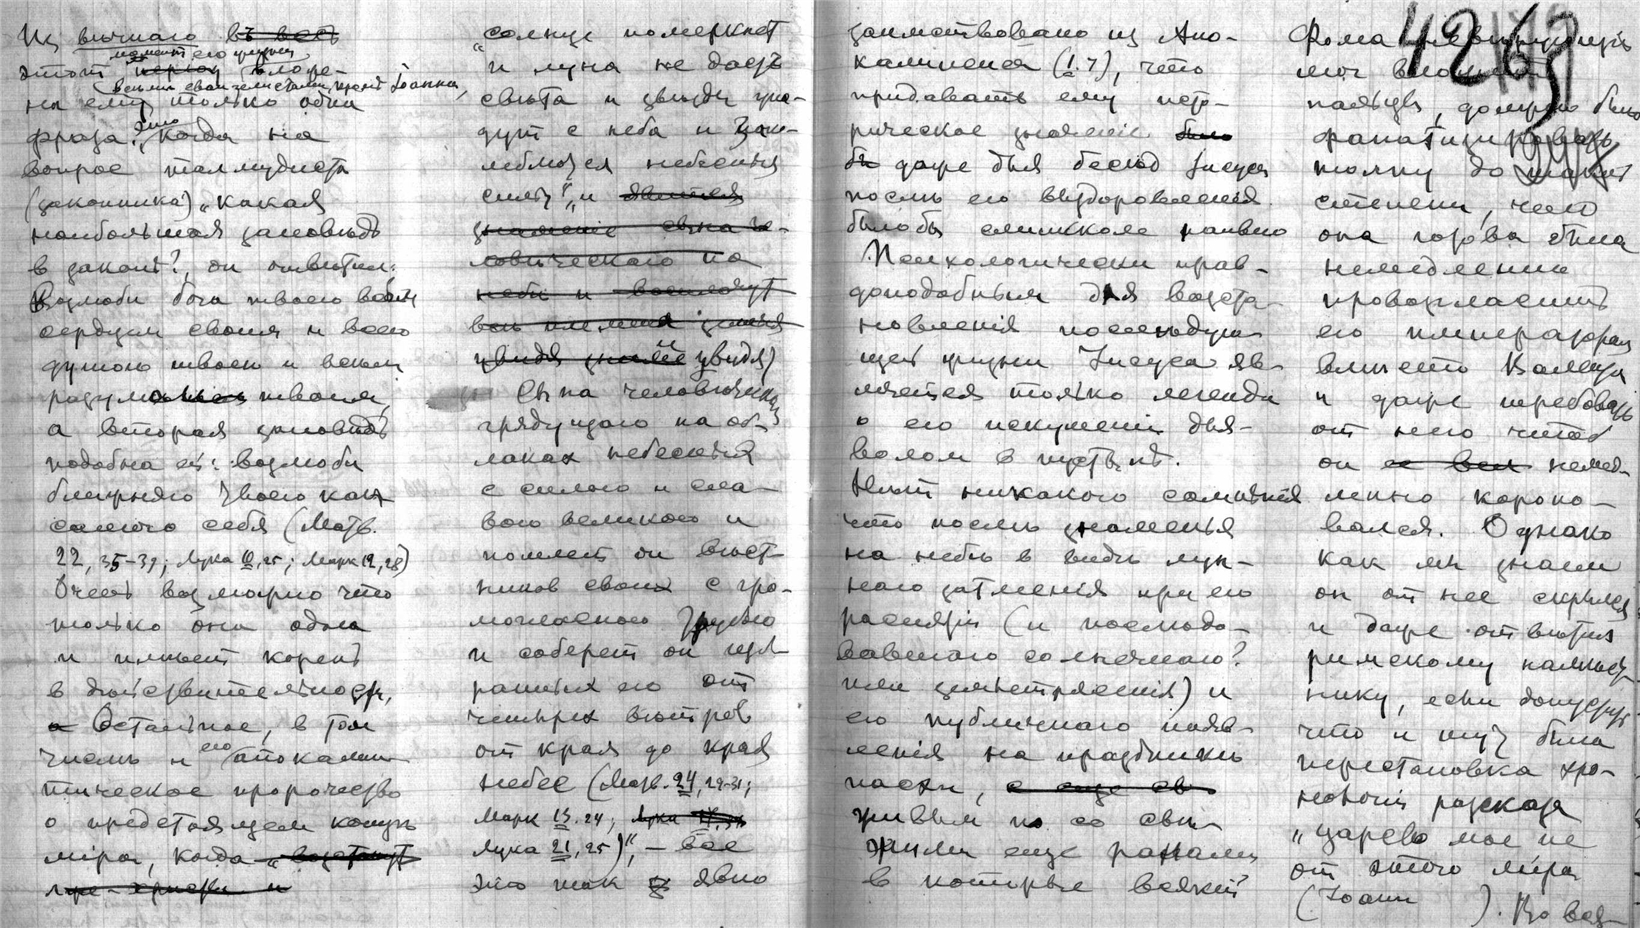 Из вѣчнаго въ весь
момент его жизни
этот период вложе-
всѣми евангелистами, кромѣ Іоанна,
на ему только одна
фраза. Это когда на
вопрос талмудиста
(законника) „какая
наибольшая заповѣдь
в законѣ?, он отвѣтил:
Возлюби бога твоего всѣм
сердцем своим и всею
душою твоею и всѣм
разумом твоим,
а вторая заповѣдь
подобна ей: возлюби
ближняго твоего как
самого себя (Матв.
22, 35-39; Лука 10, 25; Марк 12, 28)
Очень возможно что
только она одна
и имѣет корень
в дѣйствительности,
а Остальное, в том
числѣ и его апокалип-
тическое пророчество
о предстоящем концѣ
міра, когда „возстанут
лже-христы и
„солнце померкнет
и луна не даст
свѣта и звѣзды упа-
дут с неба и поко-
леблются небесныя
силы“, „и явится
знаменіе сына че-
ловѣческаго на
небѣ и восплачут
всѣ племена земныя
и увидят
Сына человѣческаго
грядущаго на об-
лаках небесных
с силою и сла-
вою великою и
пошлет он вѣст-
ников своих с гро-
могласною трубою
и соберет он изб-
ранных его от
четырех вѣтров
от края до края
небес (Матв. 24, 29-31;
Марк 13. 24; Лука
Лука 21, 25)“, — все
это так явно
заимствовано из Апо-
калипсиса (1. 7), что
придавать ему исто-
рическое значеніе было
бы даже для бесѣд Іисуса
послѣ его выздоровленія
было бы слишком наивно
Психологически прав-
доподобным для возста-
новленія последую-
щей жизни Іисуса яв-
ляется только легенда
о его искушеніи дья-
волом в пустынѣ.
Нѣт никакого сомнѣнія
что послѣ знаменья
на небѣ в видѣ лун-
наго затменія при его
распятіи (и послѣдо-
вавшаго солнечнаго?
или землетрясенія) и
его публичнаго появ-
ленія на праздники
пасхи, с еще св
живым но со свѣ-
жими еще ранами
в которые всякій
4263
Фома невѣрующій
мог вложить
пальцы, должно было
фанатизировать
толпу до такой
степени, что
она готова была
немедленно
провозгласить
его императором
вмѣсто Валента
и даже требовать
от него чтоб
он немед-
ленно короно-
вался. Однако
как мы знаем
он от нее скрылся
и даже отвѣтил
римскому намѣст-
нику, если допустить
что и тут была
перестановка хро-
нологіи рассказа
„царство мое не
от этого міра
(Іоанн ). Во вся-